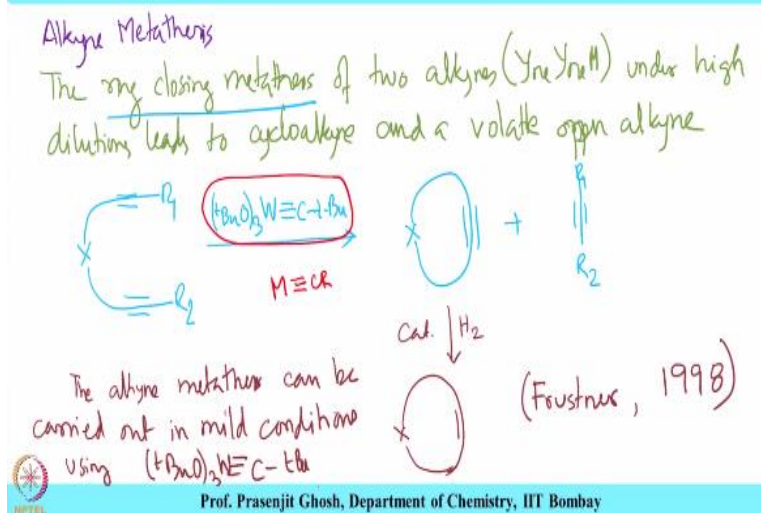 Alkyne Metathesis
The ring closing metathesis of two alkynes (YneYneM) under high
dilutions leads to cycloalkyne and a volatile open alkyne
R1
(tBuO)3W≡C-t-Bu
X
R2
M≡CR
X
+
R1
R2
Cat. H2
The alkyne metathesis can be
carried out in mild conditions
using (tBuO)3W≡C-tBu
X
(Frustner, 1998)
NPTEL
Prof. Prasenjit Ghosh, Department of Chemistry, IIT Bombay